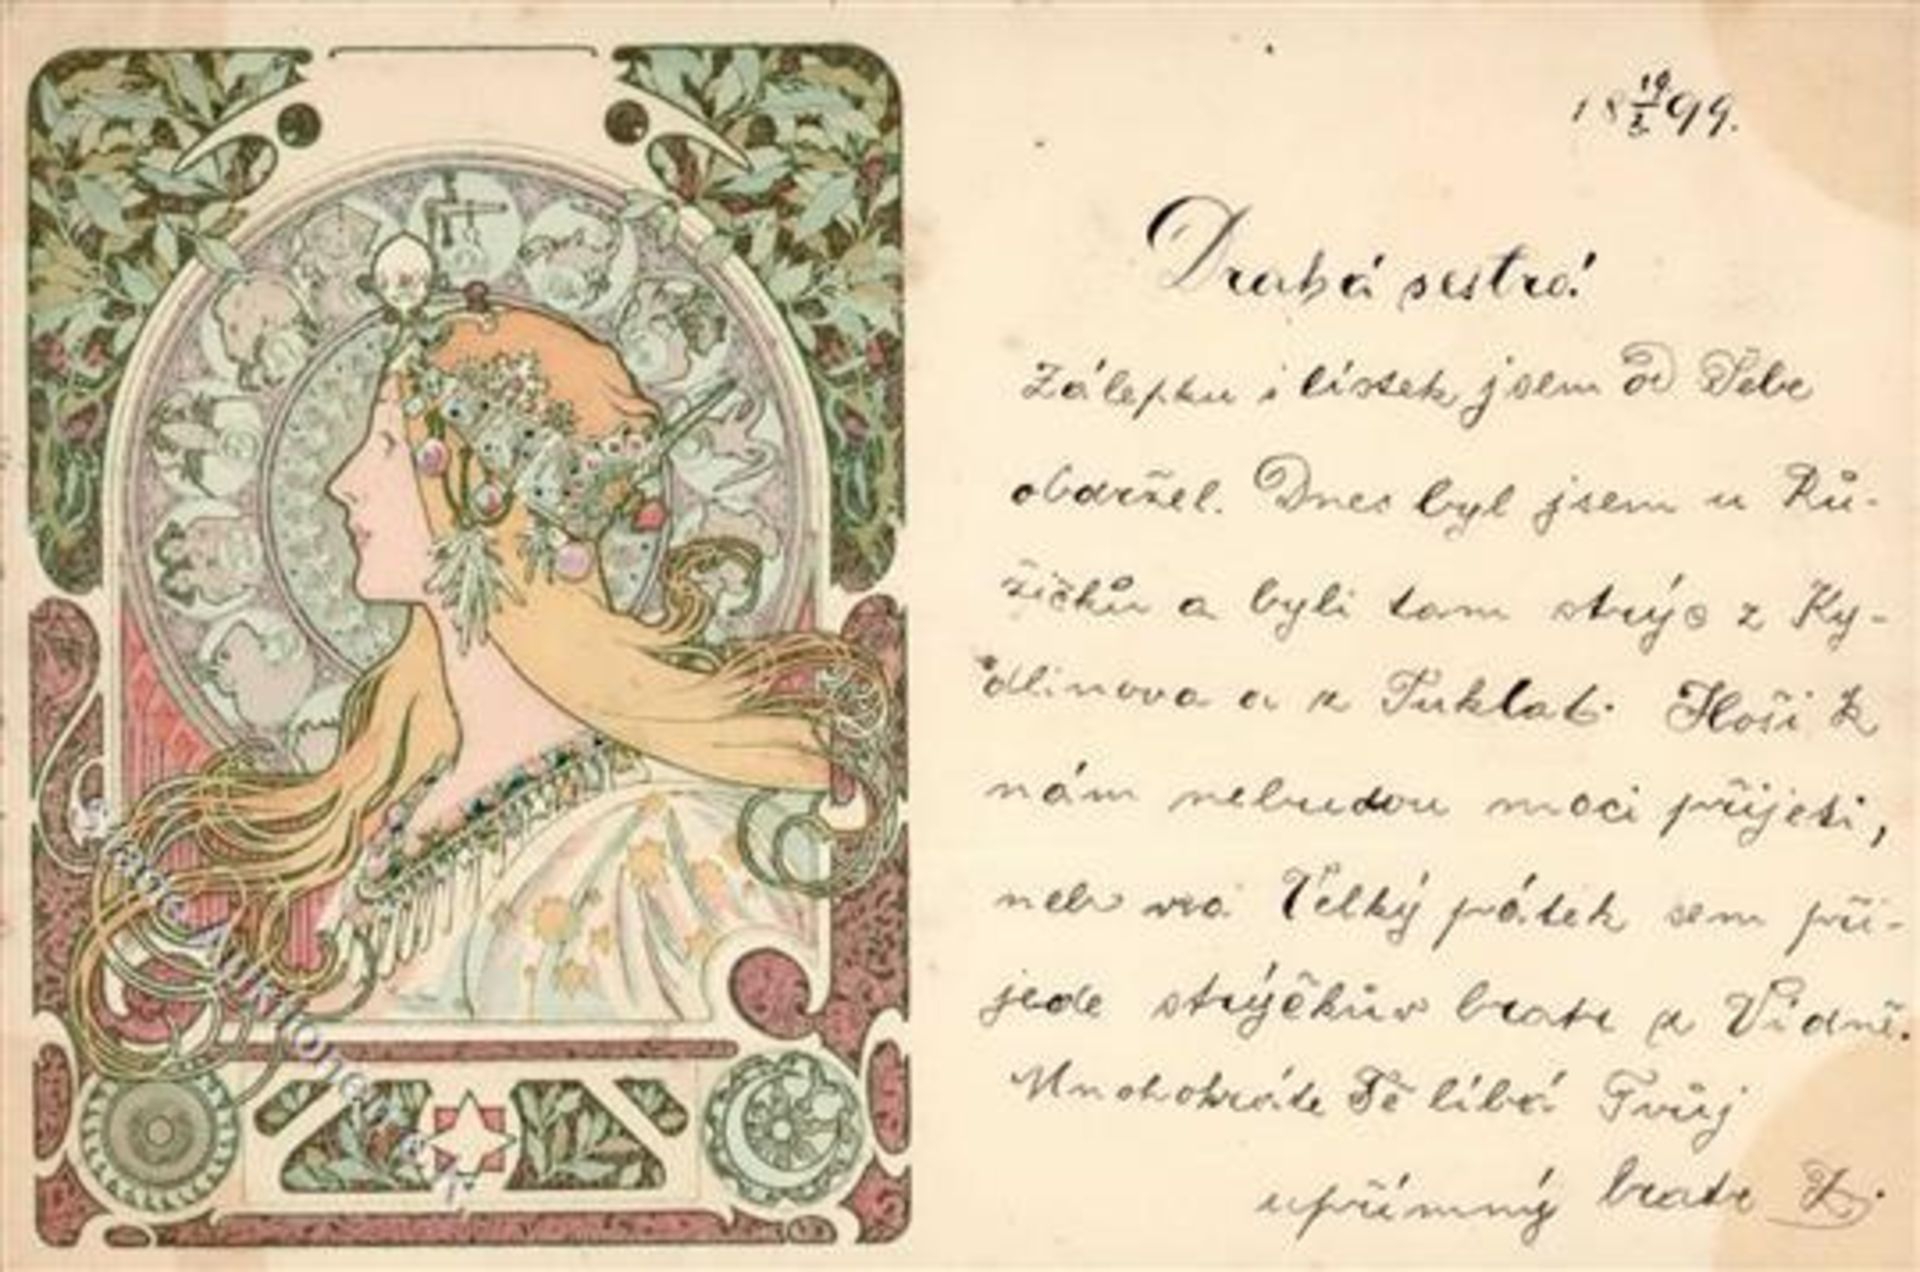 18 19/3 99.
Drahá sestro!
Zálepku i lístek jsem od Tebe
obdržel. Dnes byl jsem u Rů-
žičků a byli tam strýc z Ky-
dlinova a z Tuklat. Hoši k
nám nebudou moci přijeti,
neb na Velký pátek sem při-
jede strýčkův bratr z Vídně.
Mnohokráte Tě líbá Tvůj
upřímný bratr Z.